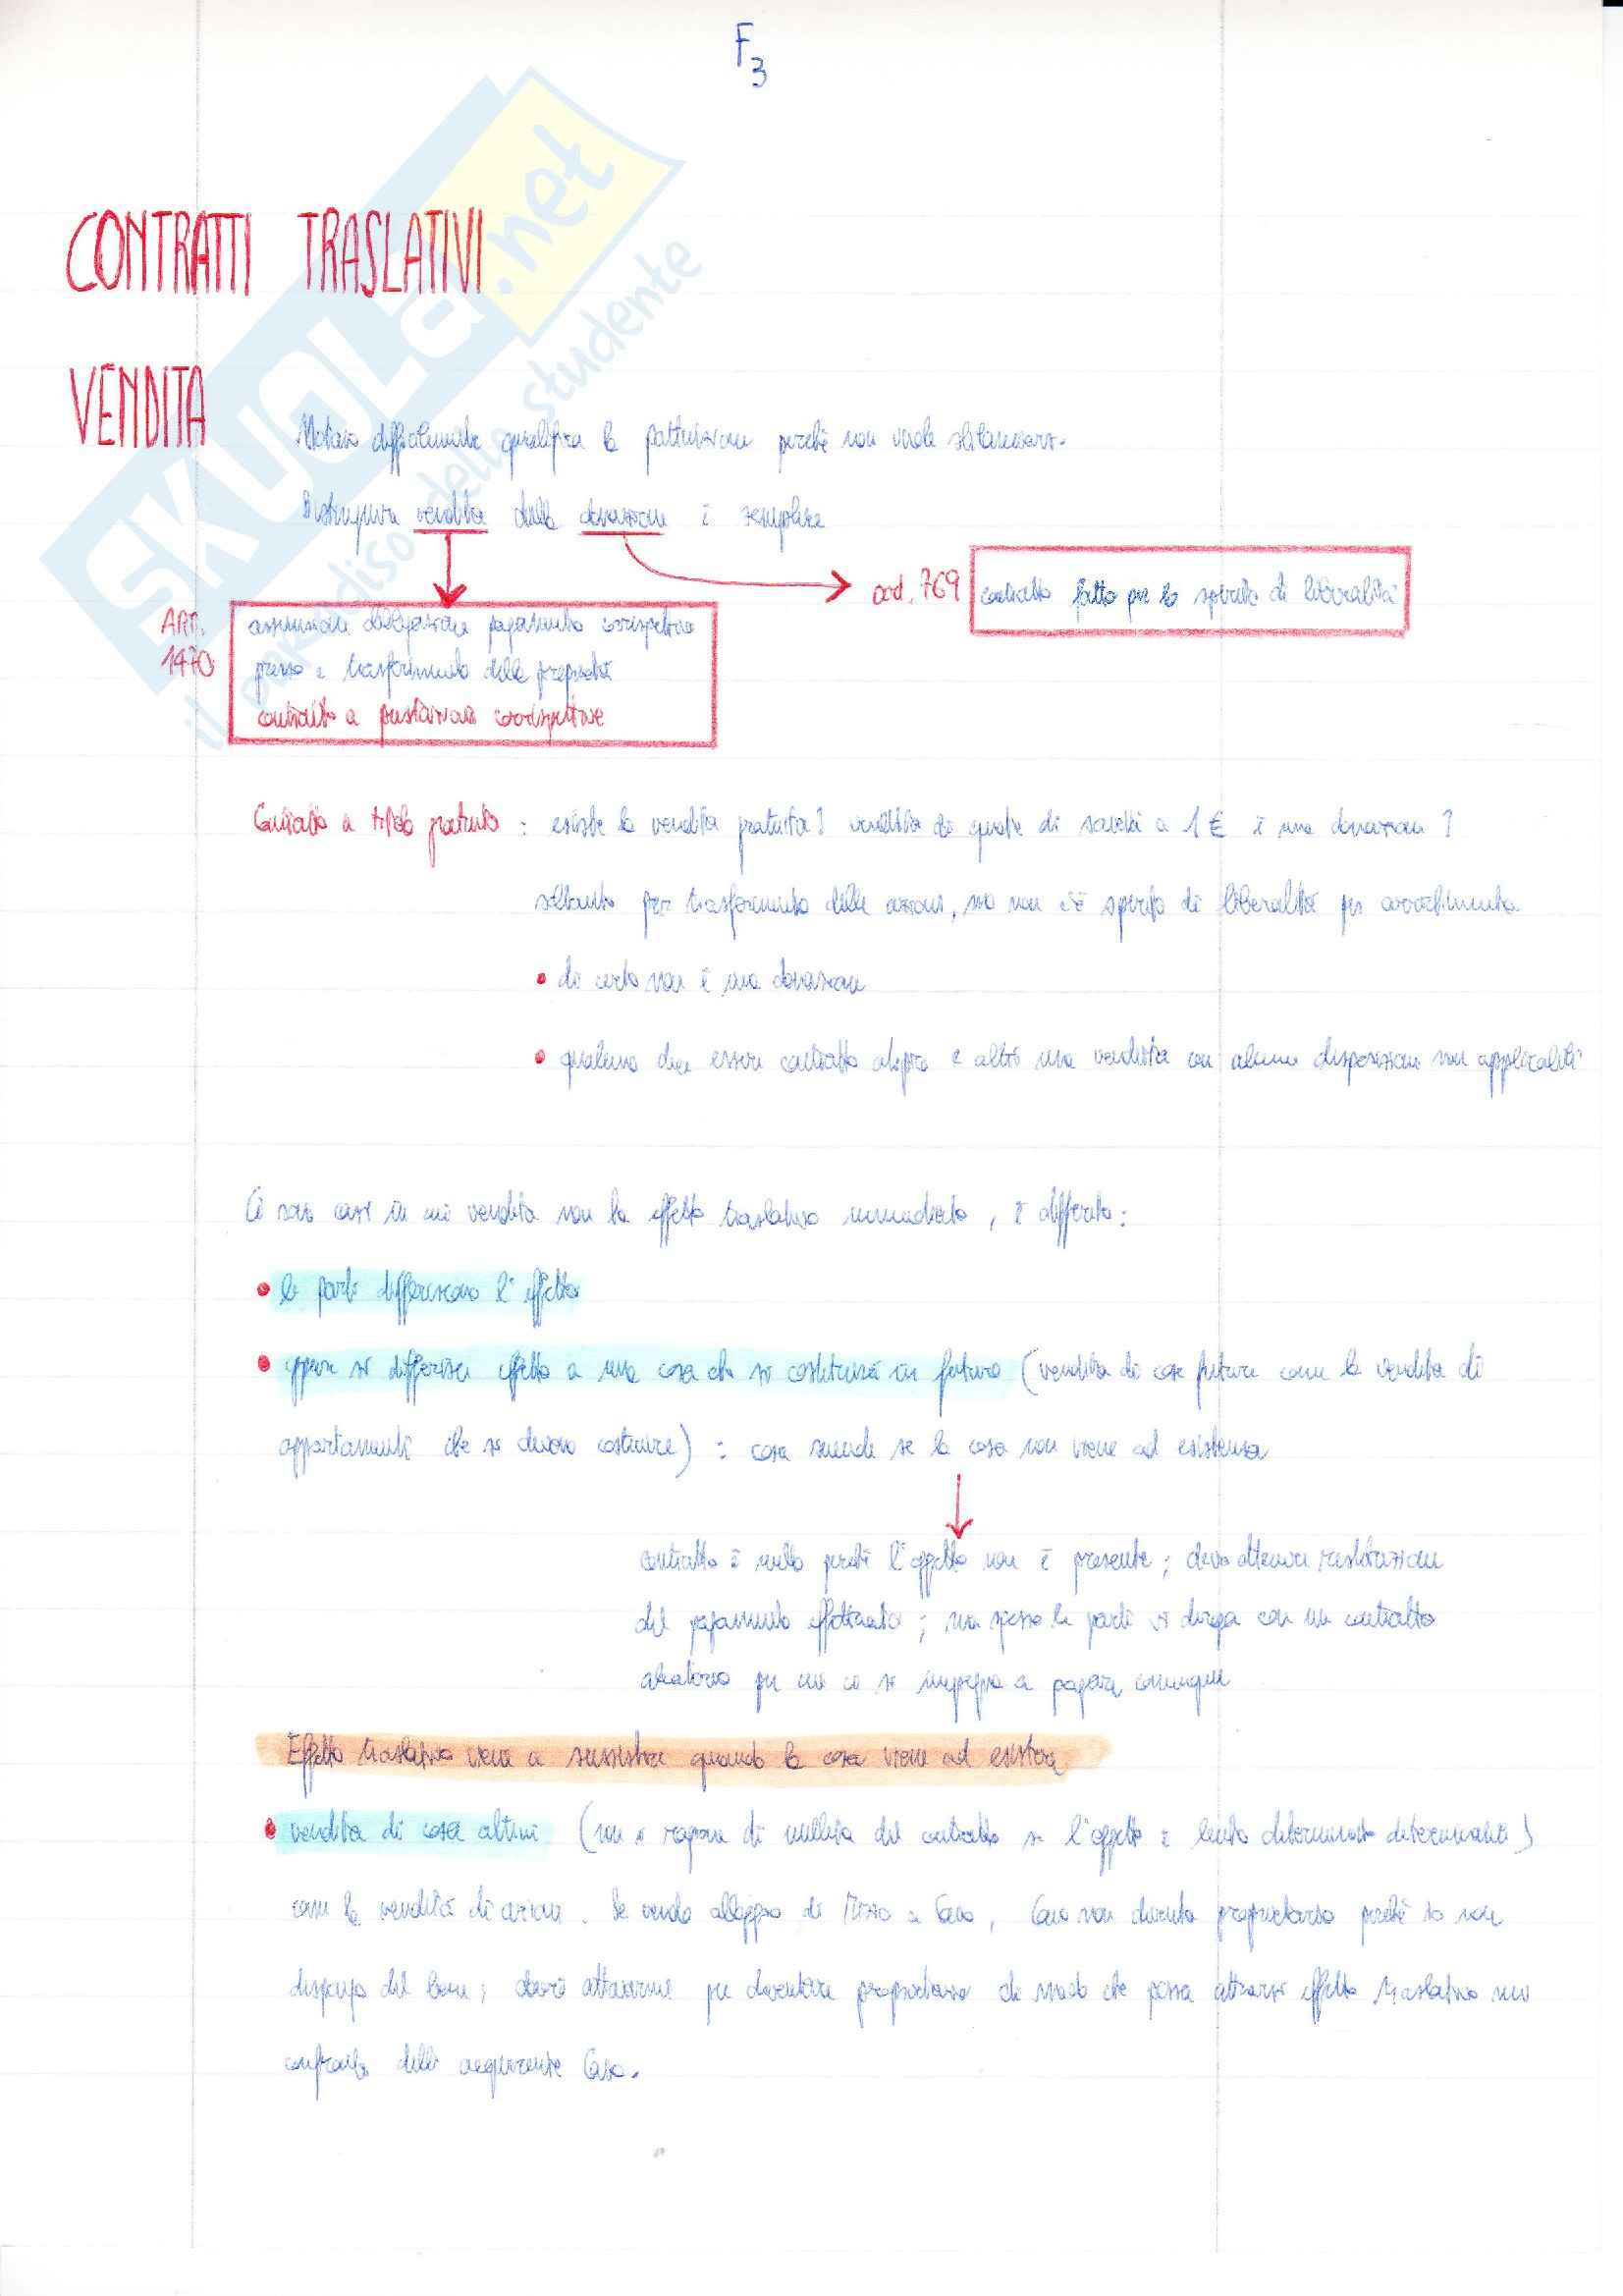 F3
CONTRATTI TRASLATIVI
VENDITA
Notaio difficilmente qualifica la pattuizione perché non vuole
Distinguere vendita dalla donazione è semplice
art. 769 contratto fatto per lo spirito di liberalità
ART. 1470
assunzione obbligazione pagamento corrispettivo
prezzo e trasferimento della proprietà
contratto a prestazioni corrispettive
Contratto a titolo gratuito : esiste la vendita gratuita? vendita di quote di società a 1 € è una donazione ?
soltanto per trasferimento delle azioni, ma non c'è spirito di liberalità per
• di certo non è una donazione
• qualcuno dice essere contratto atipico e altri una vendita con alcune disposizioni non applicabili
Ci sono casi in cui vendita non ha effetto traslativo immediato, è differito:
• le parti differiscono l'effetto
• oppure si differisce effetto a una cosa che si costituirà in futuro (vendita di cose future come la vendita di
appartamenti che si devono costruire) : cosa succede se la cosa non viene ad esistenza
contratto è nullo perché l'oggetto non è presente; devo ottenere restituzione
del pagamento effettuato; ma spesso le parti si con un contratto
aleatorio per cui ci si impegna a pagare comunque
Effetto traslativo viene a sussistere quando la cosa viene ad esistere
• vendita di cosa altrui (non è ragione di nullità del contratto se l'oggetto è lecito determinato determinabile)
come la vendita di azioni. Se vendo alloggio di Tizio a Caio, Caio non diventa proprietario perché io non
dispongo del bene; dovrò attivarmi per diventare proprietario di modo che possa attuarsi effetto traslativo nei
confronti dell' acquirente Caio.
SKUOLA.net
il paradiso dello studente